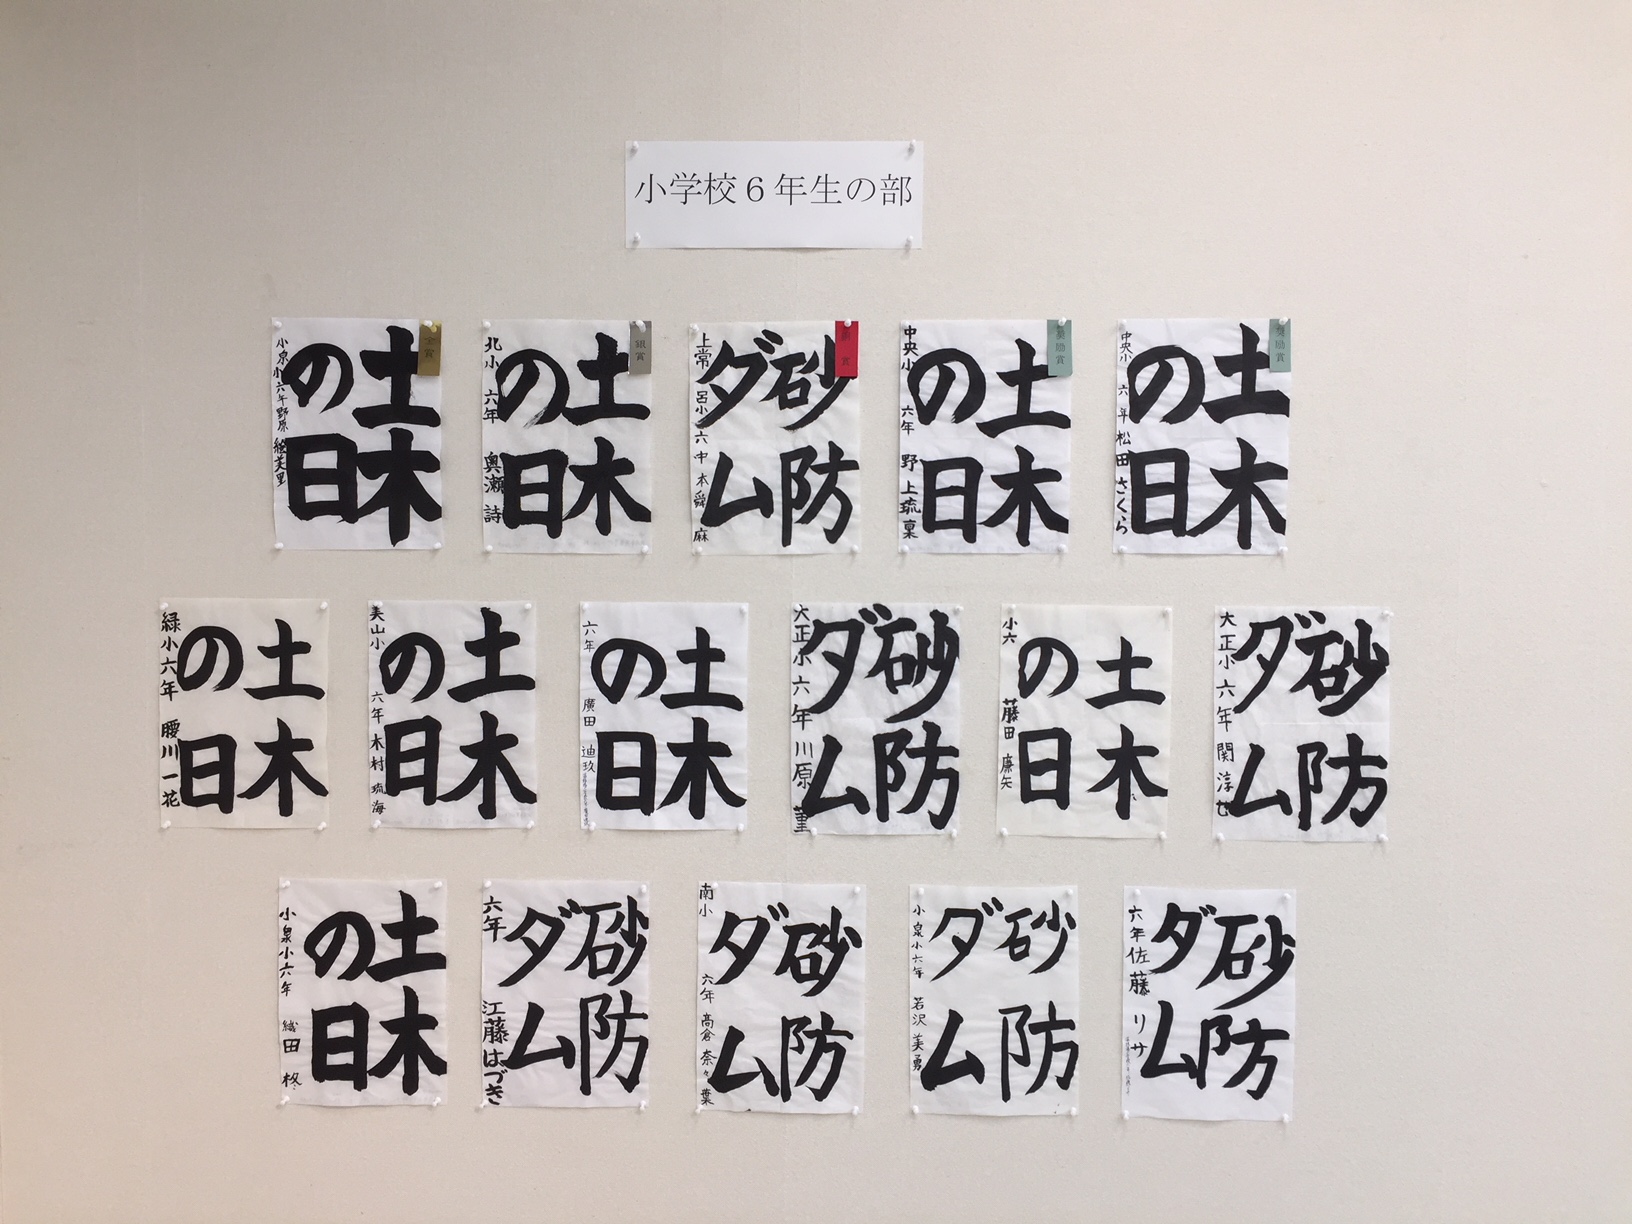 小学校６年生の部
金賞
土木
の日
小泉小六年野原 絵美里
銀賞
土木
の日
北小 六年 奥瀬 詩
銅賞
砂防
ダム
上常呂小 六 中本舜麻
奨励賞
土木
の日
中央小 六年 野上琉菓
奨励賞
土木
の日
中央小 六年 松田さくら
土木
の日
緑小六年 腰川一花
土木
の日
美山小 六年 木村 琉海
土木
の日
六年 廣田 迪玖
砂防
ダム
大正小 六年 川原 菫
土木
の日
小六 藤田 廉矢
砂防
ダム
大正小 六年 関 淳
土木
の日
小泉小六年 織田 柊
砂防
ダム
六年 江藤はづき
砂防
ダム
南小 六年 高倉 奈々葉
砂防
ダム
小泉小六年 若沢 美勇
砂防
ダム
六年 佐藤 リサ